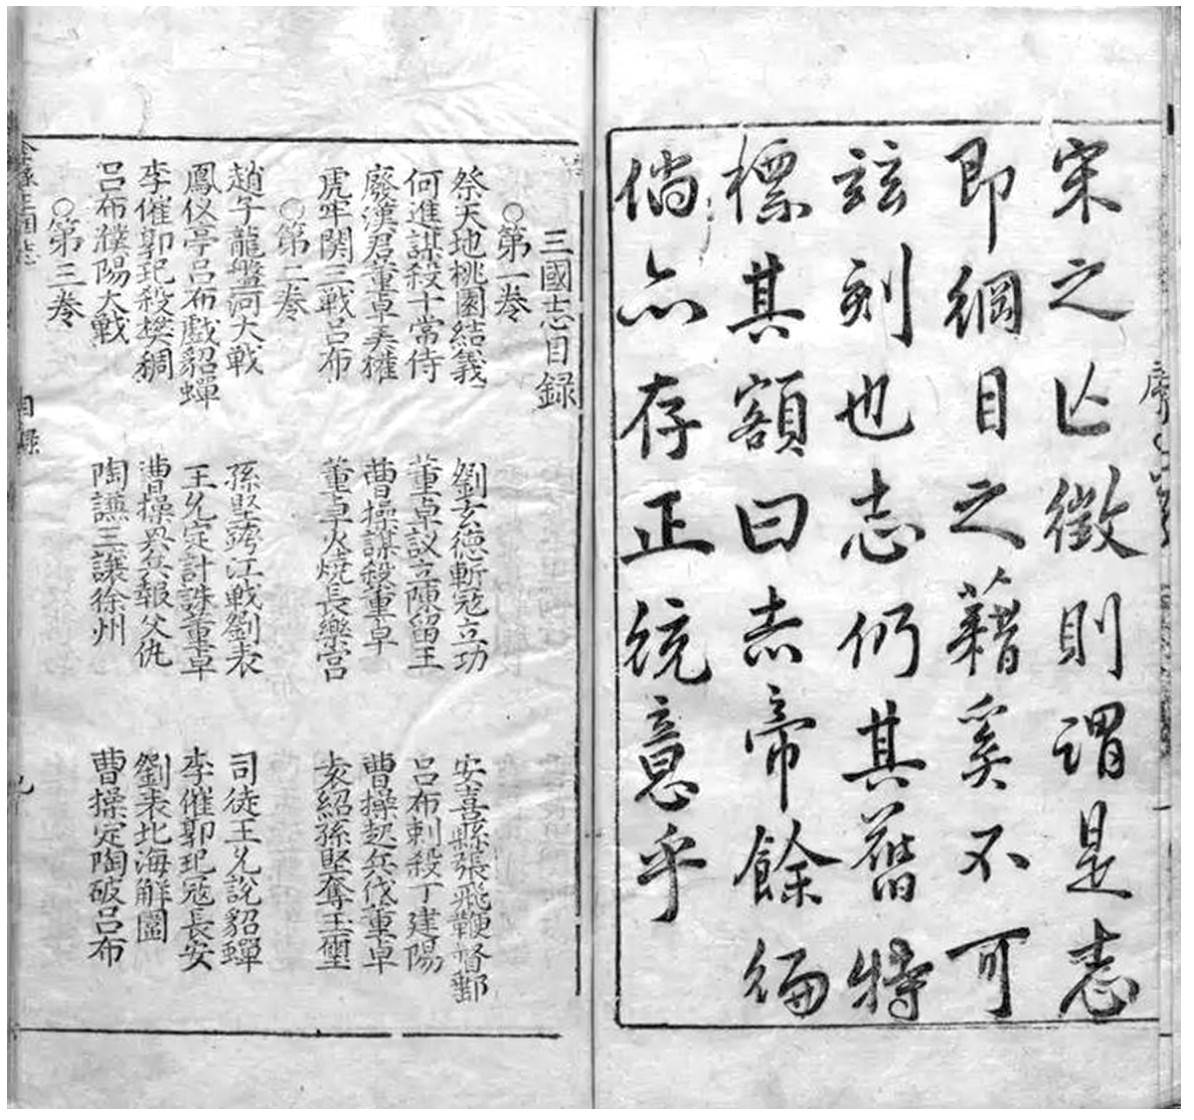 宋之亡徵則謂是志
即綱目之藉奚不可
茲刻也志仍其舊特
標其額曰志帝餘編
倘亦存正統意乎
三國志目録
○第一卷
祭天地桃園結義 劉玄德斬寇立功 安喜縣張飛鞭督郵
何進謀殺十常侍 董卓議立陳留王 吕布刺殺丁建陽
廢漢君董卓弄權 曹操謀殺董卓 曹操起兵伐董卓
虎牢関三戰吕布 董卓火燒長樂宮 袁紹孫堅奪玉璽
○第二卷
趙子龍盤河大戰 孫堅跨江戰劉表 司徒王允說貂蟬
鳳仪亭吕布戲貂蟬 王允定計誅董卓 李傕郭汜寇長安
李傕郭汜殺樊稠 曹操興兵報父仇 劉表北海解圍
吕布濮陽大戰 陶謙三讓徐州 曹操定陶破吕布
○第三卷
目録